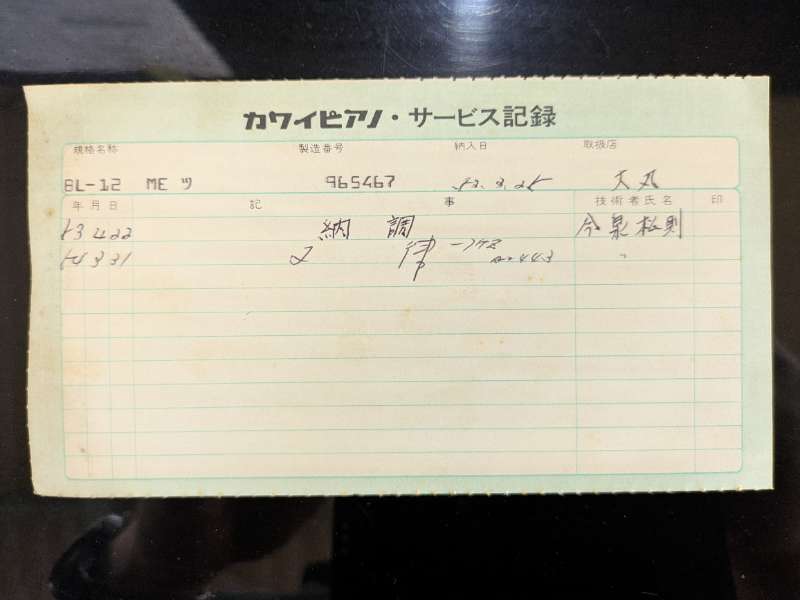 カワイピアノ・サービス記録
規格名称 製造番号 納入日 取扱店
BL-12 MEツ 965467 53.3.25 大丸
年月日 記事 技術者氏名 印
53 4 22 納調 今泉松則
54 3 31 律 A=443 〃